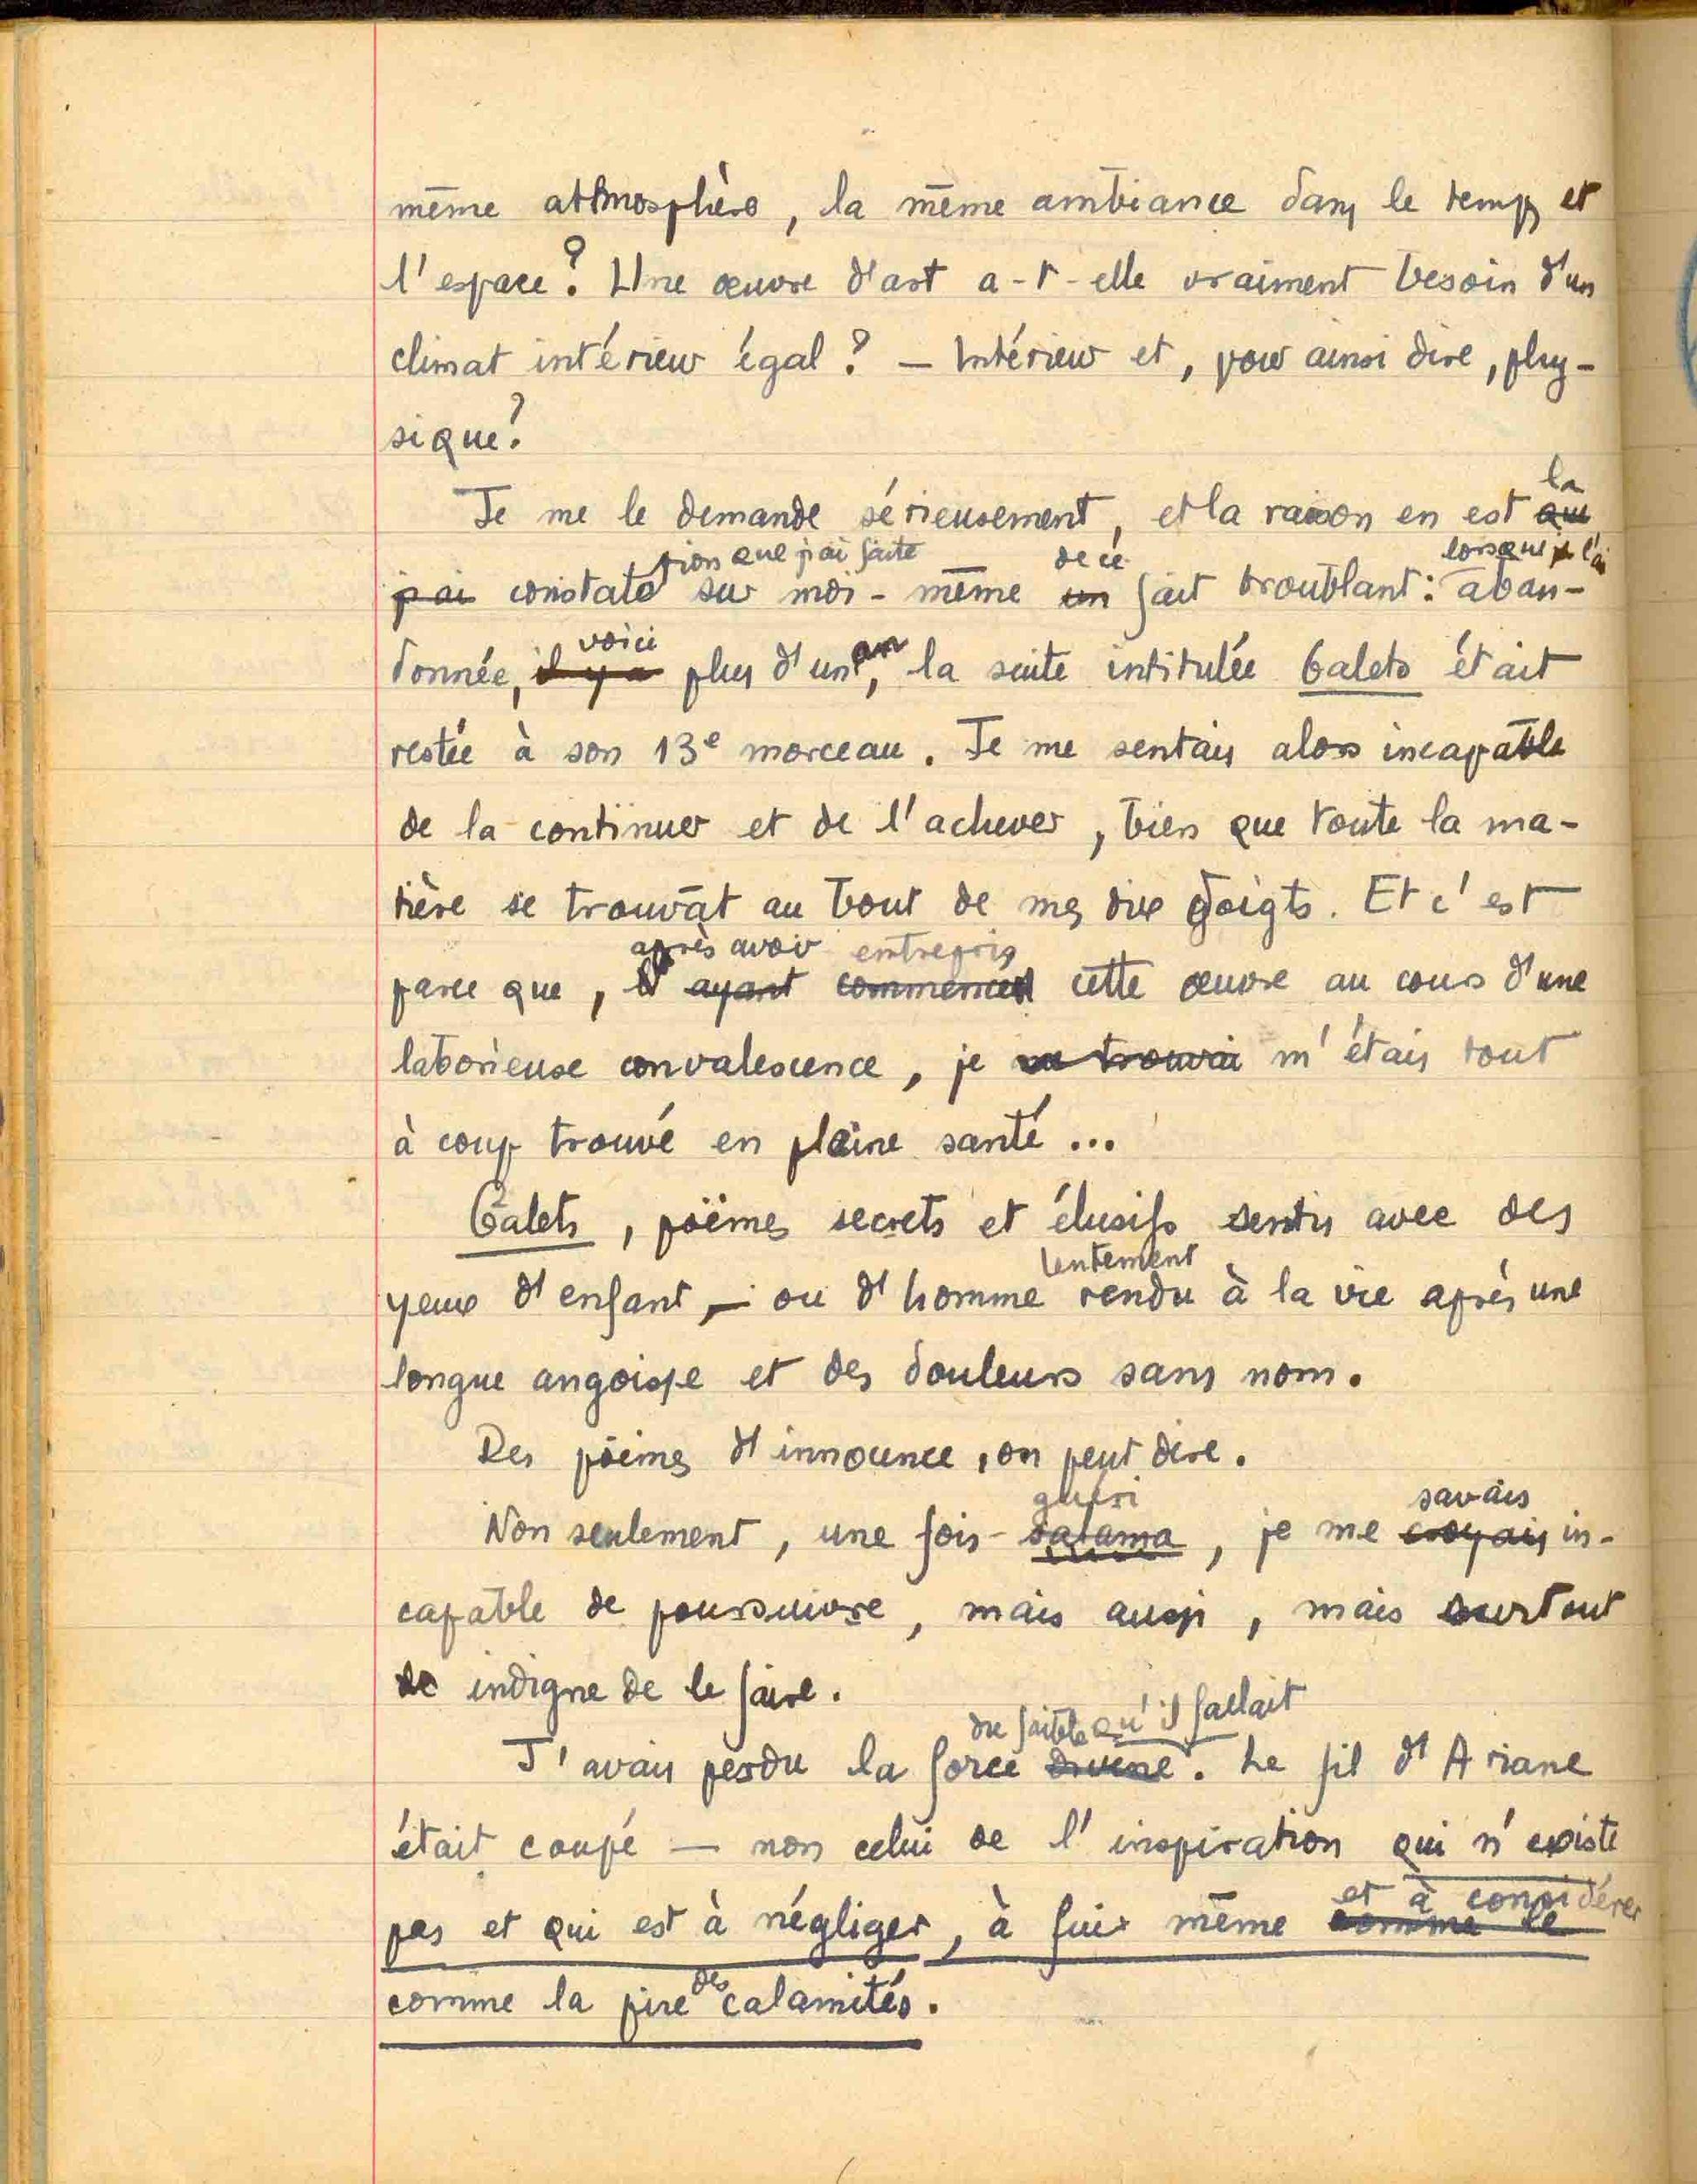 même atmosphère, la même ambiance dans le temps et
l'espace? Une œuvre d'art a-t-elle vraiment besoin d'un
climat intérieur égal? — Intérieur et, pour ainsi dire, phy-
sique?
la
Je me le demande sérieusement, et la raison en est que
tion que j'ai faite de ce lorsque je l'ai
j'ai constaté sur moi-même un fait troublant: aban-
voici an
donnée, il y a plus d'un, la suite intitulée Galets était
restée à son 13e morceau. Je me sentais alors incapable
de la continuer et de l'achever, bien que toute la ma-
tière se trouvât au bout de mes dix doigts. Et c'est
après avoir entrepris
parce que, ayant commencé cette œuvre au cours d'une
laborieuse convalescence, je me trouvai m'étais tout
à coup trouvé en pleine santé...
Galets, poëmes secrets et élusifs sentis avec des
lentement
yeux d'enfant, — ou d'homme rendu à la vie après une
longue angoisse et des douleurs sans nom.
Des poëmes d'innocence, on peut dire.
guéri savais
Non seulement, une fois salama, je me croyais in-
capable de poursuivre, mais aussi, mais surtout
de indigne de le faire.
du faible qu'il fallait
J'avais perdu la force divine. Le fil d'Ariane
était coupé — non celui de l'inspiration qui n'existe
et à considérer
pas et qui est à négliger, à fuir même comme le
des
comme la pire calamités.